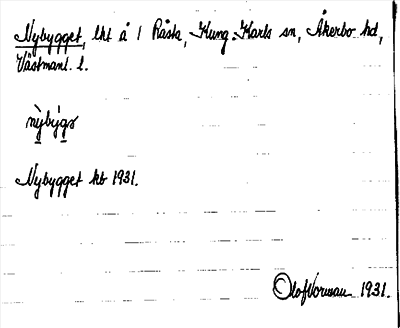 Nybygget, lht å 1 Råsta, Kung-Karls sn, Åkerbo hd,
Västmanl. l.
nỳbýgə
Nybygget kb 1931.
Olof Norman 1931.